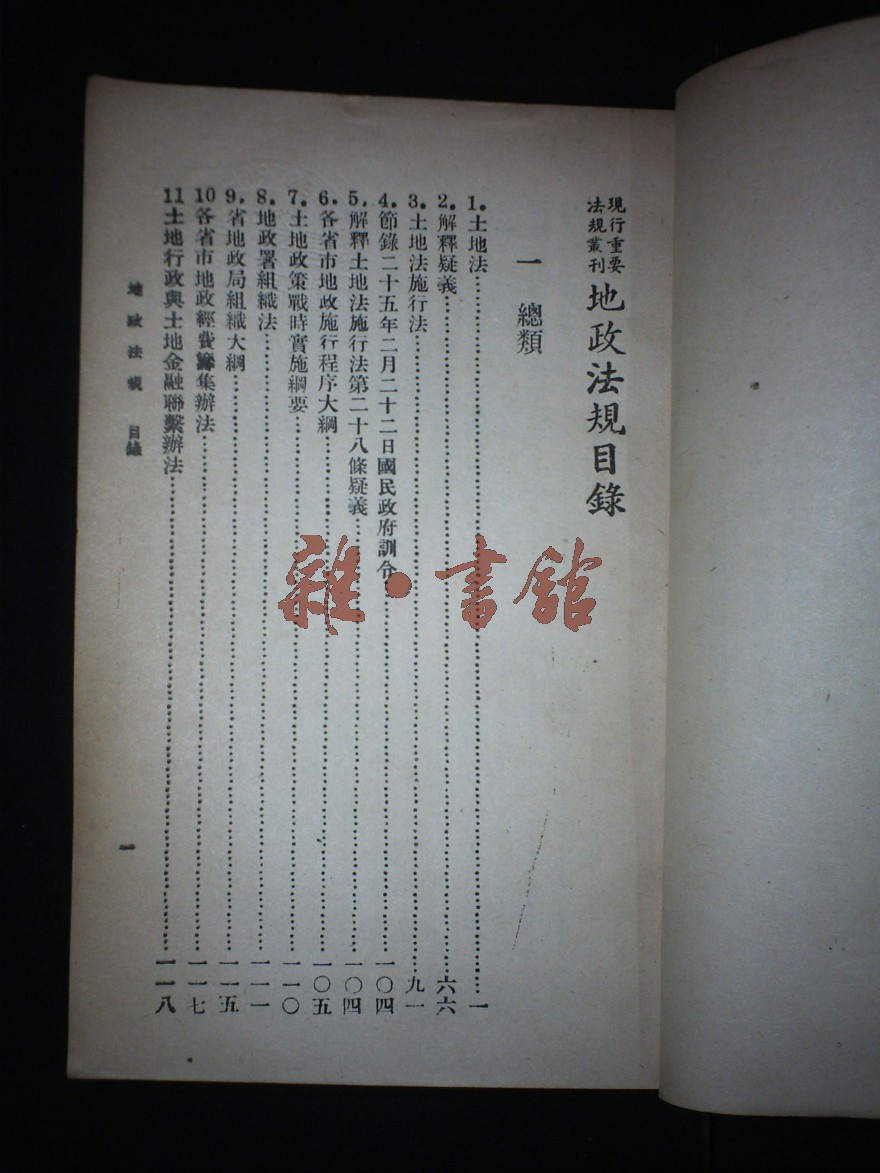 現行重要
法規叢刊
地政法規目錄
一 總類
1. 土地法……一
2. 解釋疑義……六六
3. 土地法施行法……九一
4. 節錄二十五年二月二十二日國民政府訓令……一〇四
5. 解釋土地法施行法第二十八條疑義……一〇四
6. 各省市地政施行程序大綱……一〇五
7. 土地政策戰時實施綱要……一一〇
8. 地政署組織法……一一一
9. 省地政局組織大綱……一一五
10 各省市地政經費籌集辦法……一一七
11 土地行政與土地金融聯繫辦法……一一八
地政法規 目錄
一
雜·書館